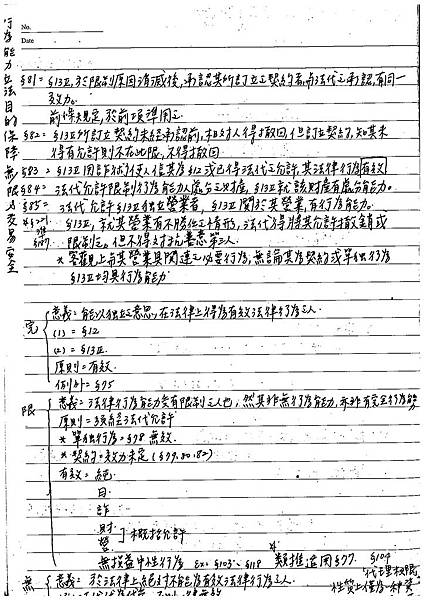 行為能力立法目的保障無限人交易安全
No.
Date
§81=§13Ⅱ,於限制原因消滅後,承認其所訂立之契約者,與法代之承認,有同一
效力。
前條規定,於前項準用之
§82=§13Ⅱ所訂立契約未經承認前,相對人得撤回,但訂立契約時,知其未
得有允許則不在此限,不得撤回
§83=§13Ⅱ用詐術使人信其為§12或已得法代之允許,其法律行為有效
§84=法代允許限制行為能力人處分之財產,§13Ⅱ就該財產有處分能力。
§85=法代允許§13Ⅱ獨立營業者,§13Ⅱ關於其營業,有行為能力。
§13Ⅱ,就其營業有不勝任之情形,法代得將其允許撤銷或
限制之。但不得對抗善意第三人
*客觀上與其營業具關連之必要行為,無論其為契約或單獨行為
§13Ⅱ均具行為能力
完
意義=能以獨立之意思,在法律上得為有效法律行為之人
(1)=§12
(2)=§13Ⅲ
原則=有效
例外=§75
限
意義=法律行為能力受有限制之人也,然其非無行為能力,亦非有完全行為能力
原則=須經法代允許
*單獨行為=§78無效
*契約=效力未定(§79.80.82)
有效=純
日
詐
財
營
]概括允許
無損益中性行為 Ex=§103、§118 類推適用§77. §104
代理權限
性質上僅為一種資
無
意義=於法律上絕對不能為有效法律行為之人